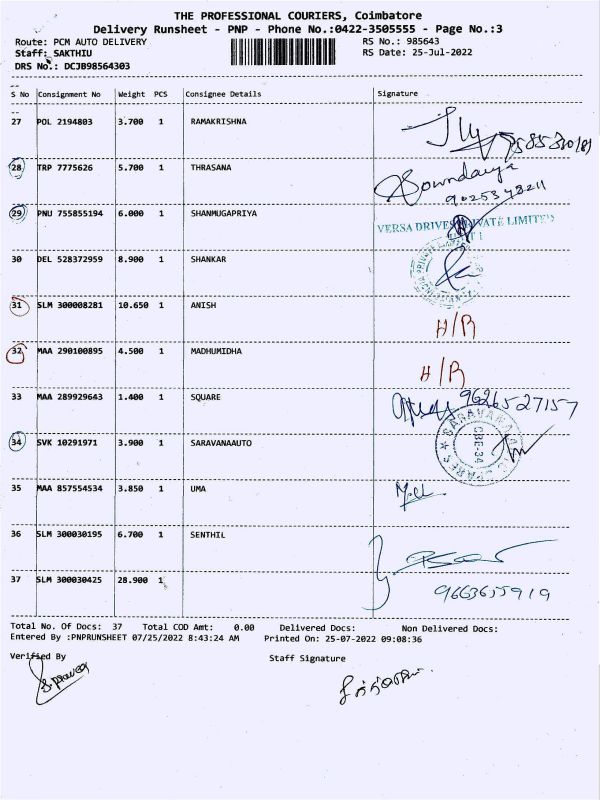 THE PROFESSIONAL COURIERS, Coimbatore
Delivery Runsheet - PNP - Phone No.:0422-3505555 - Page No.:3
Route: PCM AUTO DELIVERY RS No.: 985643
Staff: SAKTHIU RS Date: 25-Jul-2022
DRS No.: DCJB98564303
S No Consignment No Weight PCS Consignee Details Signature
27 POL 2194803 3.700 1 RAMAKRISHNA
28 TRP 7775626 5.700 1 THRASANA Sowndarya
9025343211
29 PNU 755855194 6.000 1 SHANMUGAPRIYA
VERSA DRIVES PRIVATE LIMITED
30 DEL 528372959 8.900 1 SHANKAR
31 SLM 300008281 10.650 1 ANISH H/R
32 MAA 290100895 4.500 1 MADHUMIDHA H/R
33 MAA 289929643 1.400 1 SQUARE 9626527157
34 SVK 10291971 3.900 1 SARAVANAAUTO
CBE-34
35 MAA 857554534 3.850 1 UMA
36 SLM 300030195 6.700 1 SENTHIL
37 SLM 300030425 28.900 1 9663655919
Total No. Of Docs: 37 Total COD Amt: 0.00 Delivered Docs: Non Delivered Docs:
Entered By :PNPRUNSHEET 07/25/2022 8:43:24 AM Printed On: 25-07-2022 09:08:36
Verified By Staff Signature